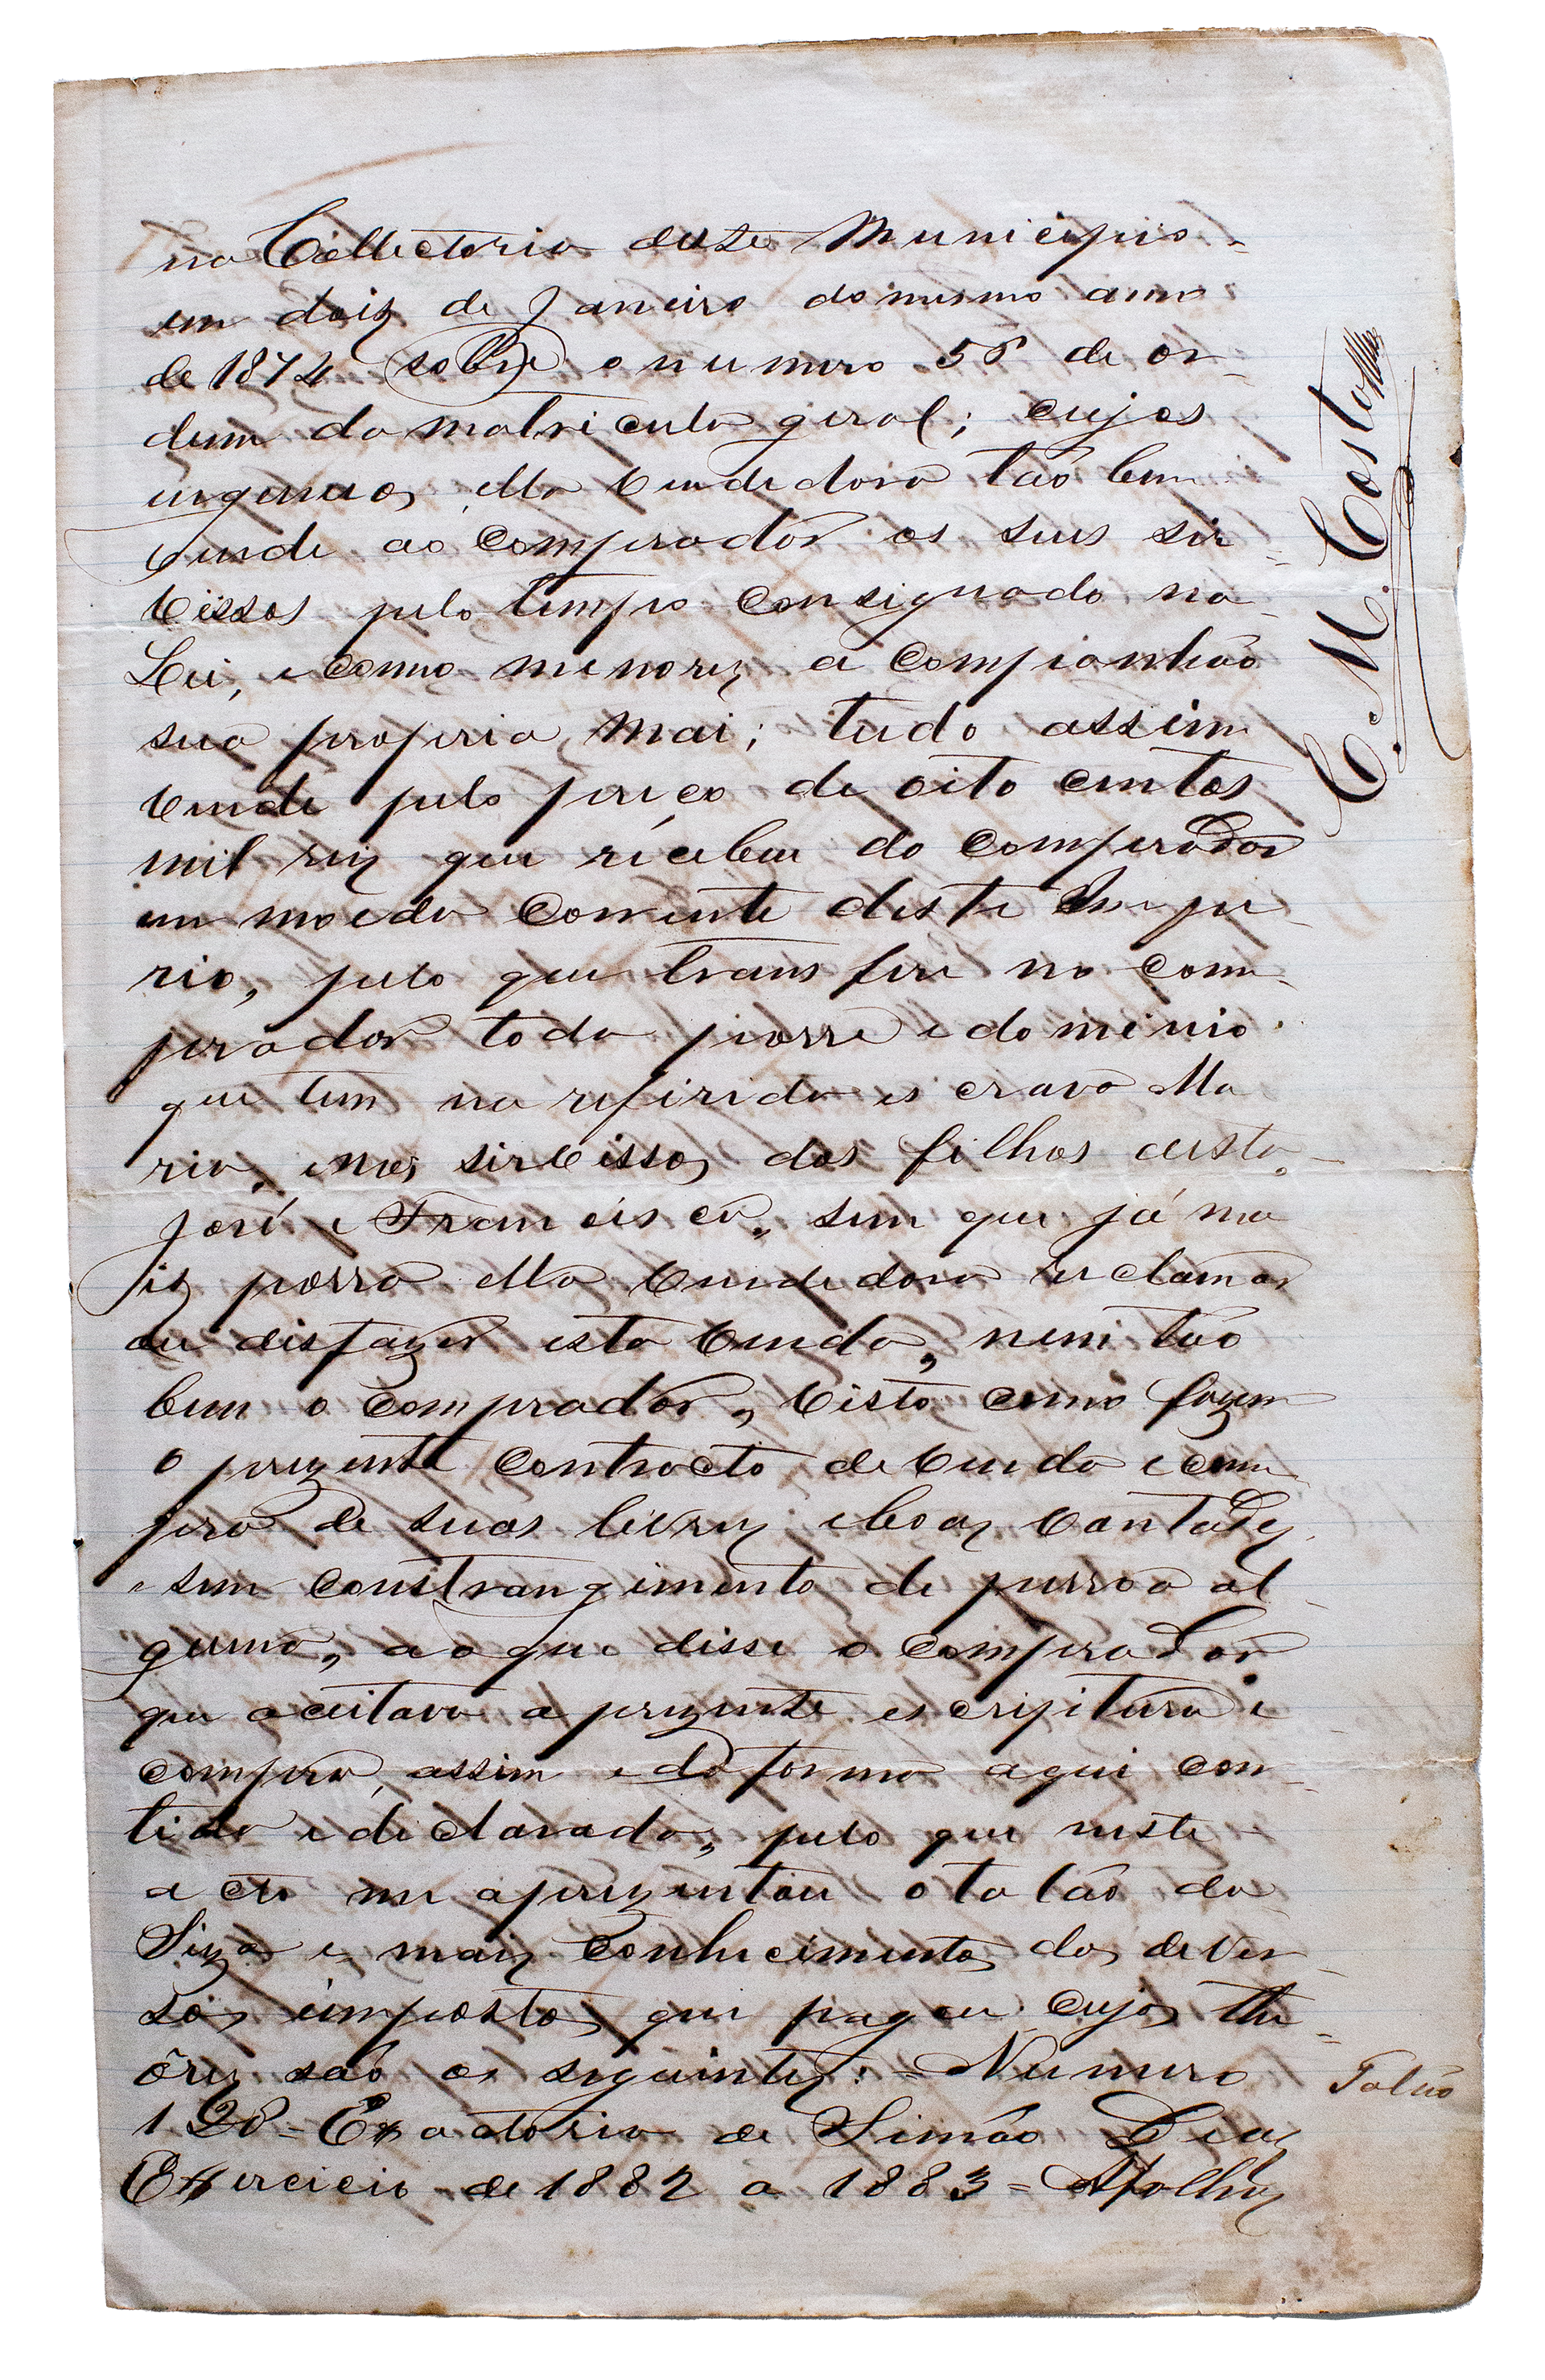 na Collectoria deste Municipio
em dois de Janeiro do mesmo anno
de 1874 sobre o numero 58 de or-
dem da matricula geral; cujos
ingenuos, ella vendedora tão bem
vende ao comprador os seus sir-
vissos pelo tempo consignado na
Lei, e como menores, a companhão
sua propria Mai; tudo assim
vende pelo preço de oito centos
mil reis que recebeu do comprador
em moeda corrente deste Impe-
rio, pelo que transfere no com-
prador toda posse e dominio
que tem na referida escrava Ma
ria, e nos sirvissos dos filhos desta,
José e Francisca, sem que já ma
is possa ella vendedora reclamar
ou disfazer esta venda, nem tão
bem o comprador, visto como fazem
o prezente contracto de venda e com-
pra de suas livres e boas vontades,
e sem constrangimento de pessoa al-
guma, ao que disse o comprador
que aceitava a prezente escriptura e
compra, assim e da forma aqui con-
tida e declarada, pelo que neste
acto me aprezentou o talão da
Siza e mais conhecimentos dos dever-
sos impostos que pagou cujos the-
ôres são os seguintes: = Numero
128 = Exactoria de Simão Dias
Exercicio de 1882 a 1883 = Afolhas
Talão
C. M. Costa